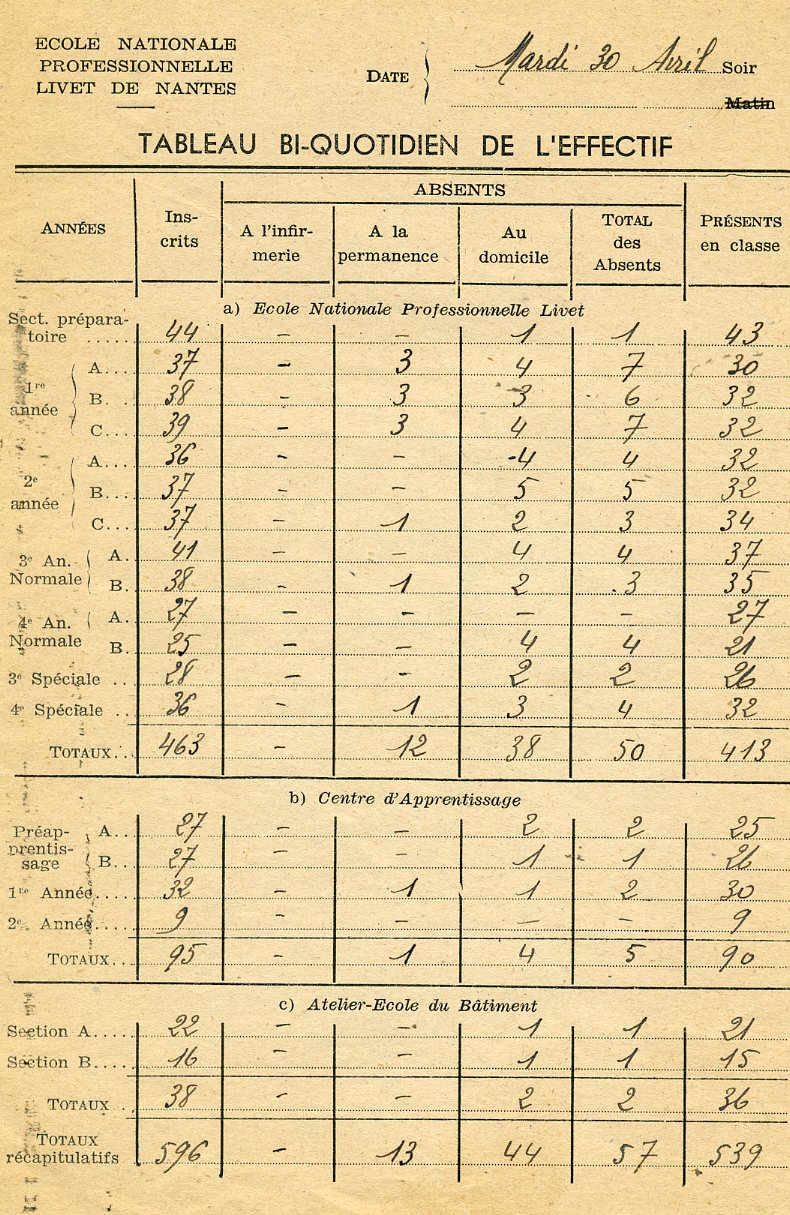 ECOLE NATIONALE
PROFESSIONNELLE
LIVET DE NANTES
DATE Mardi 30 Avril Soir
Matin
TABLEAU BI-QUOTIDIEN DE L'EFFECTIF
ANNÉES Ins- crits ABSENTS PRÉSENTS en classe
A l'infir- merie A la permanence Au domicile TOTAL des Absents
a) Ecole Nationale Professionnelle Livet
Sect. prépara-
toire ..... 44 - - 1 1 43
1re année A... 37 - 3 4 7 30
B... 38 - 3 3 6 32
C... 39 - 3 4 7 32
2e année A... 36 - - 4 4 32
B... 37 - - 5 5 32
C... 37 - 1 2 3 34
3e An. Normale A. 41 - - 4 4 37
B. 38 - 1 2 3 35
4e An. Normale A. 27 - - - - 27
B. 25 - - 4 4 21
3e Spéciale .. 28 - - 2 2 26
4e Spéciale .. 36 - 1 3 4 32
TOTAUX... 463 - 12 38 50 413
b) Centre d'Apprentissage
Préap-
prentis-
sage A.. 27 - - 2 2 25
B.. 27 - - 1 1 26
1re Année..... 32 - 1 1 2 30
2e Année..... 9 - - - - 9
TOTAUX... 95 - 1 4 5 90
c) Atelier-Ecole du Bâtiment
Section A..... 22 - - 1 1 21
Section B..... 16 - - 1 1 15
TOTAUX . 38 - - 2 2 36
TOTAUX
récapitulatifs 596 - 13 44 57 539